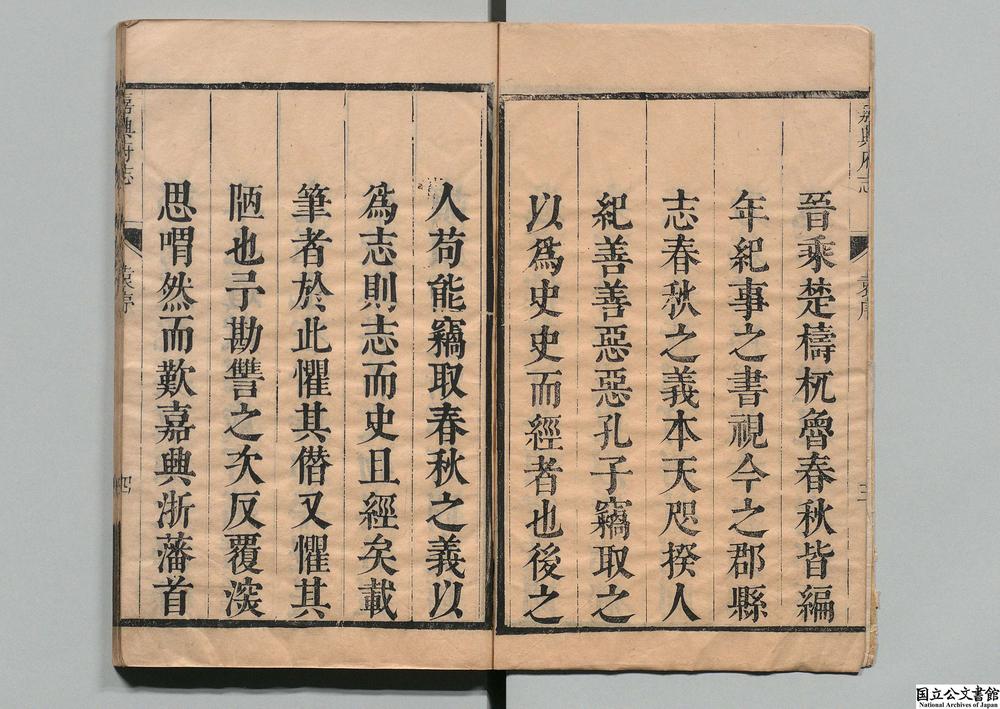 嘉興府志
袁序
三
晉乘楚檮杌魯春秋皆編
年紀事之書視今之郡縣
志春秋之義本天咫揆人
紀善善惡惡孔子竊取之
以爲史史而經者也後之
人苟能竊取春秋之義以
爲志則志而史且經矣載
筆者於此懼其僭又懼其
陋也予勘讐之次反覆深
思喟然而歎嘉興浙藩首
嘉興府志
袁序
四
国立公文書館
National Archives of Japan